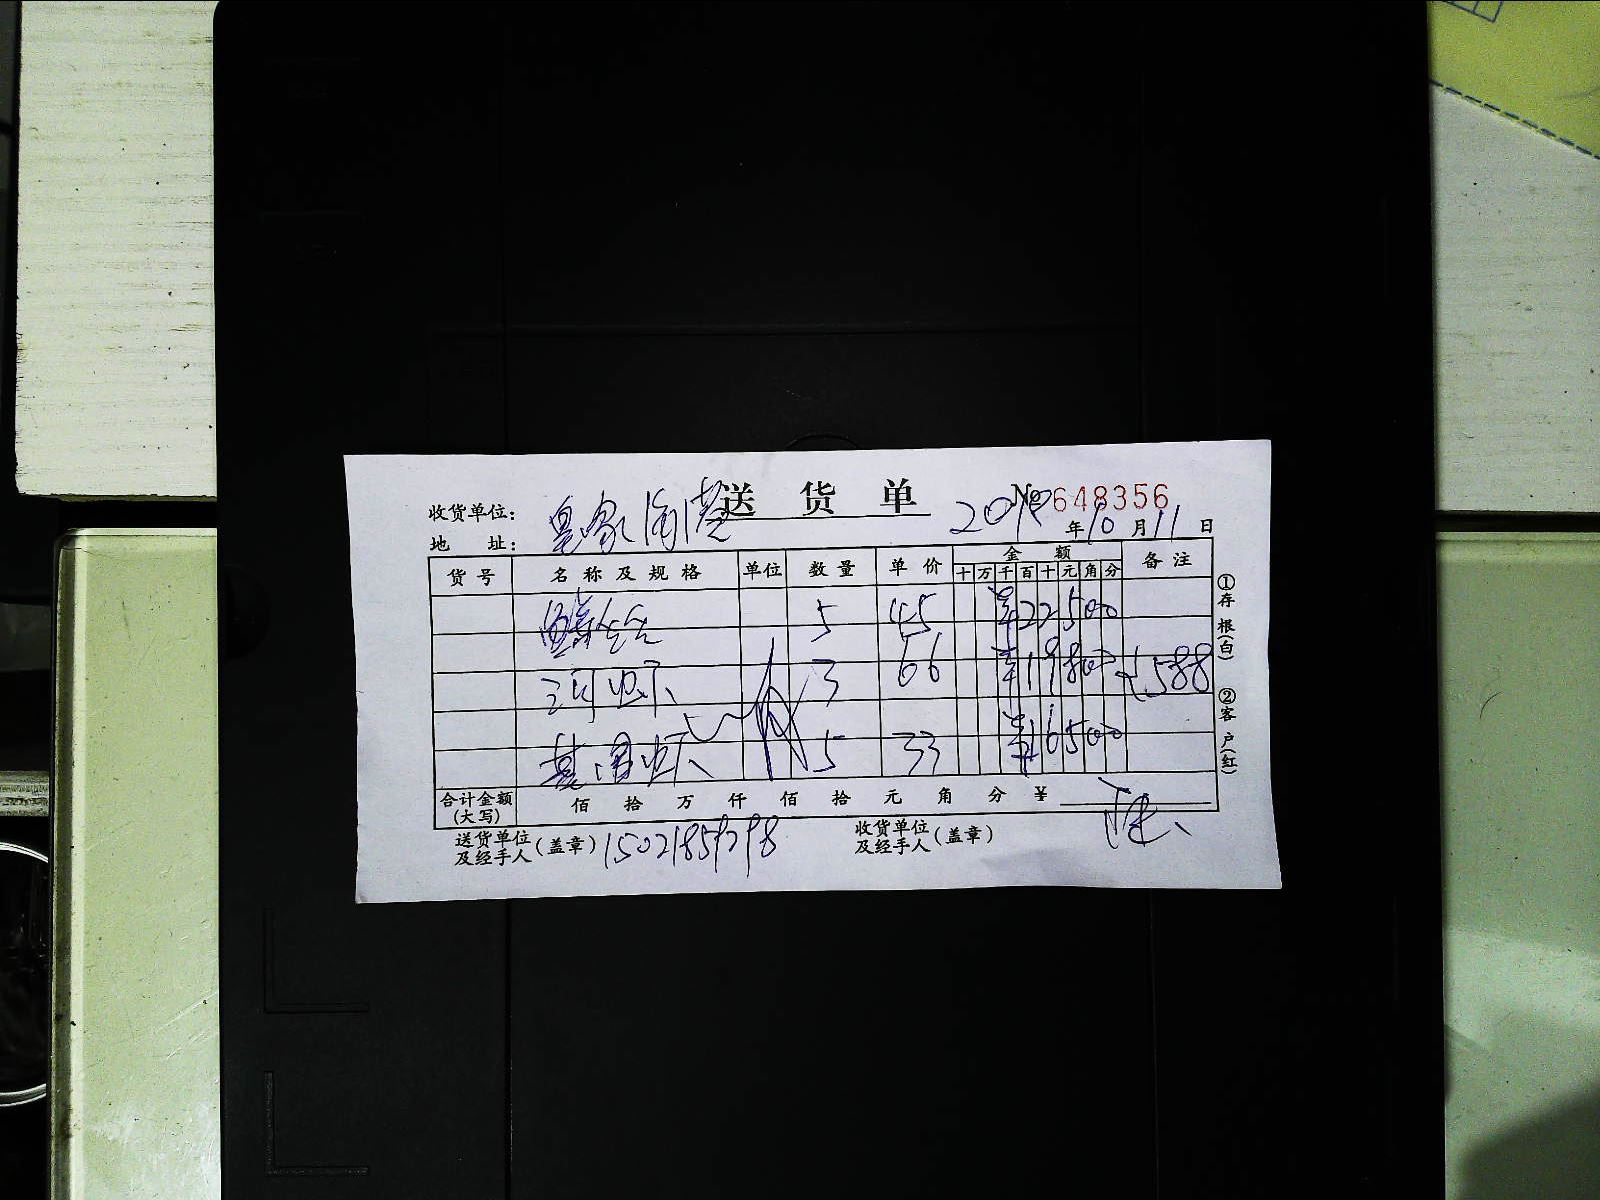 送货单
№ 648356
收货单位：
地 址：
年10月11日
货号 名称及规格 单位 数量 单价 金额 备注
十 万 千 百 十 元 角 分
5 45 ¥22500
河虾 3 66 ¥19800 588
基围虾 5 33 ¥16500
合计金额(大写) 佰 拾 万 仟 佰 拾 元 角 分 ¥
送货单位及经手人(盖章) 收货单位及经手人(盖章)
①存根(白)
②客户(红)